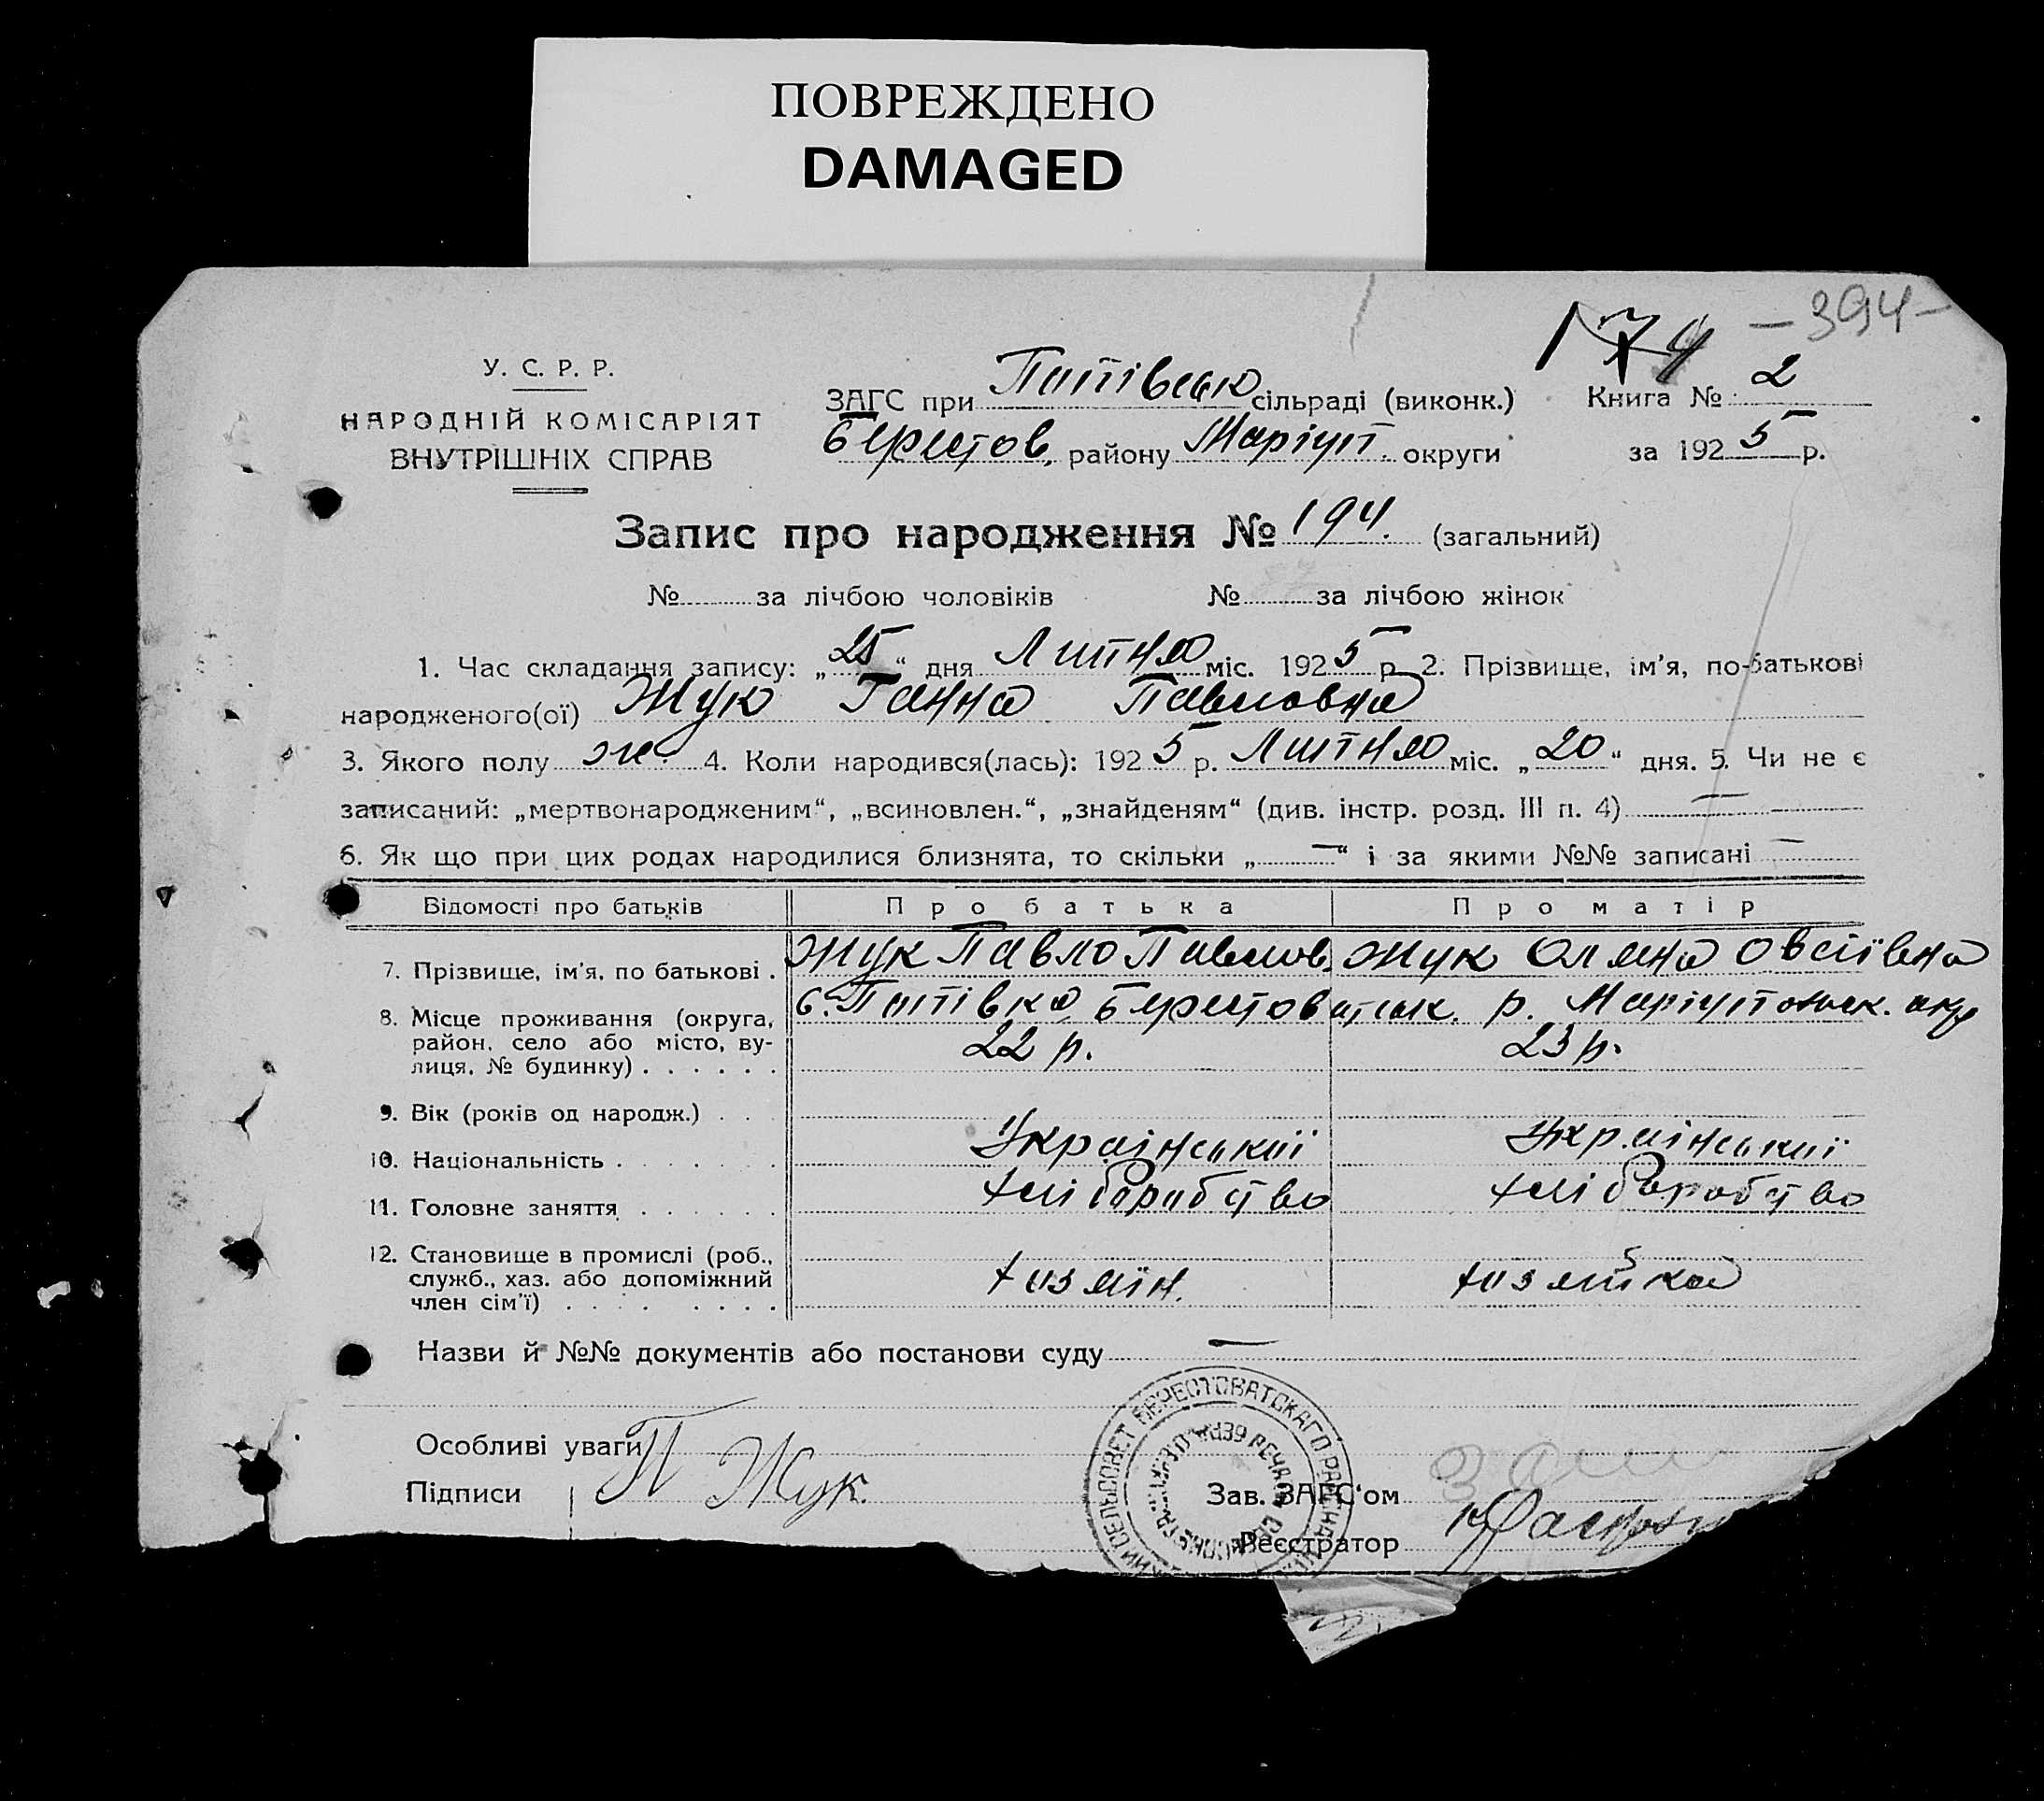 ПОВРЕЖДЕНО
DAMAGED
— 394 —
174
У. С. Р. Р.
НАРОДНІЙ КОМІСАРІЯТ
ВНУТРІШНІХ СПРАВ
ЗАГС при сільраді (виконк.) Книга № 2
Берестов. району Маріуп. округи за 1925 р.
Запис про народження № 194. (загальний)
№ за лічбою чоловіків № за лічбою жінок
1. Час складання запису: „25“ дня Липня міс. 1925 р. 2. Прізвище, ім’я, по-батькові
народженого(ої) Жук Ганна Павловна
3. Якого полу ж. 4. Коли народився(лась): 1925 р. Липня міс. „20“ дня. 5. Чи не є
записаний: „мертвонародженим“, „всиновлен.“, „знайденям“ (див. інстр. розд. III п. 4) —
6. Як що при цих родах народилися близнята, то скільки „—“ і за якими №№ записані —
Відомості про батьків Про батька Про матір
7. Прізвище, ім’я, по батькові . Жук Павло Павлов. Жук Олена Овсіївна
8. Місце проживання (округа, район, село або місто, вулиця, № будинку) . . . . . .
с. Берестоватськ. р. Маріупольск. окр
22 р. 23 р.
9. Вік (років од народж.) . .
10. Національність . . . . . . . Український Український
11. Головне заняття . . . . . . хліборобство хліборобство
12. Становище в промислі (роб., служб., хаз. або допоміжний член сім’ї) . . . . . . . . хазяїн. хазяйка
Назви й №№ документів або постанови суду —
Особливі уваги
Підписи П Жук.
Зав. ЗАГС‘ом
Реєстратор
СЕЛЬСОВЕТ БЕРЕСТОВАТСКАГО